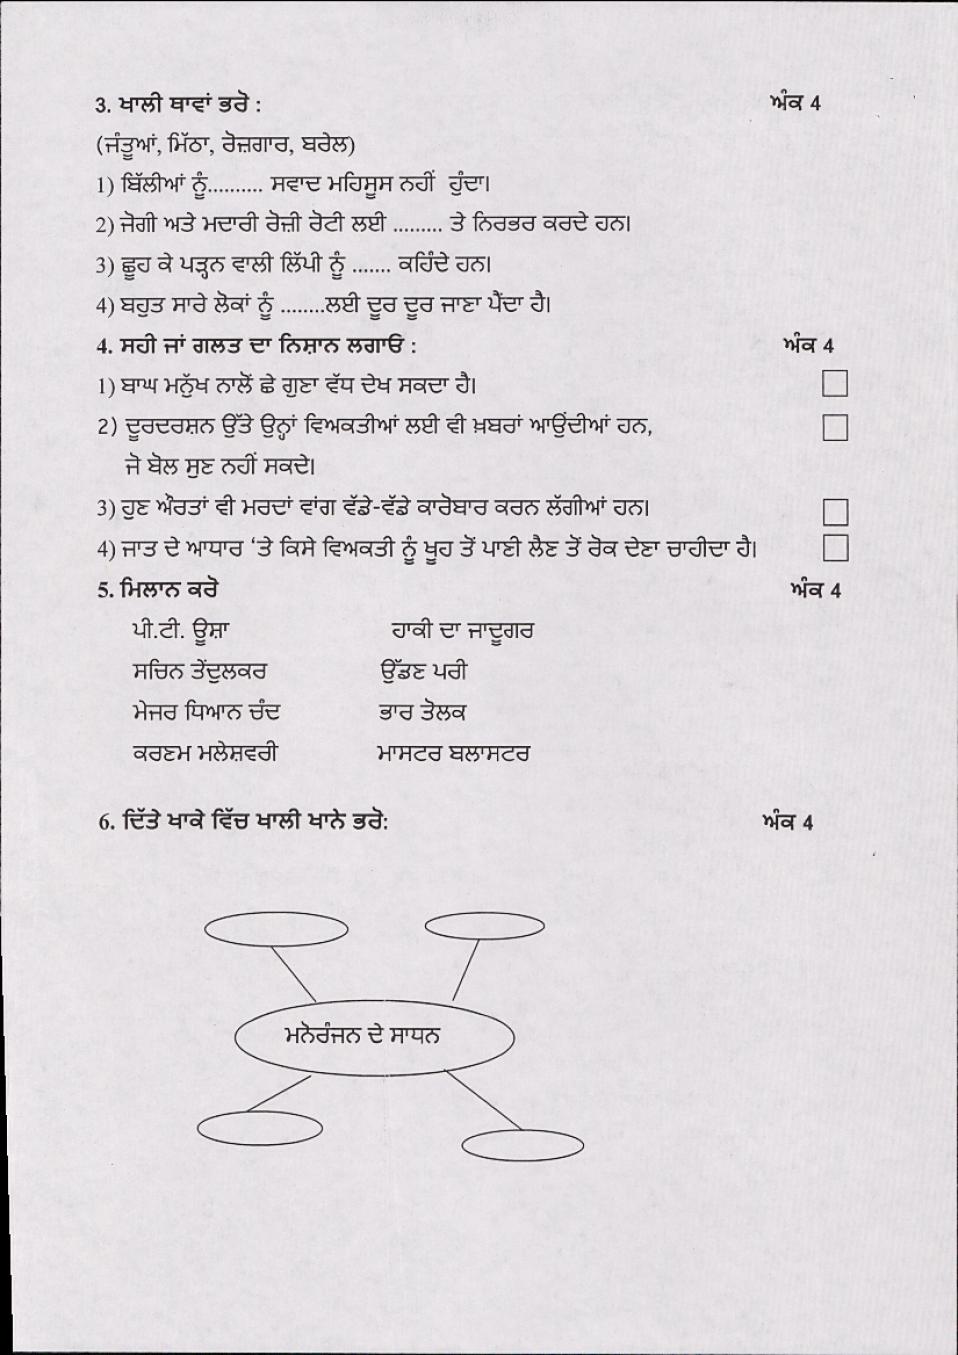 3. ਖਾਲੀ ਥਾਵਾਂ ਭਰੋ : ਅੰਕ 4
(ਜੰਤੂਆਂ, ਮਿੱਠਾ, ਰੋਜ਼ਗਾਰ, ਬਰੇਲ)
1) ਬਿੱਲੀਆਂ ਨੂੰ.......... ਸਵਾਦ ਮਹਿਸੂਸ ਨਹੀਂ ਹੁੰਦਾ।
2) ਜੋਗੀ ਅਤੇ ਮਦਾਰੀ ਰੋਜ਼ੀ ਰੋਟੀ ਲਈ ......... ਤੇ ਨਿਰਭਰ ਕਰਦੇ ਹਨ।
3) ਛੂਹ ਕੇ ਪੜ੍ਹਨ ਵਾਲੀ ਲਿੱਪੀ ਨੂੰ ....... ਕਹਿੰਦੇ ਹਨ।
4) ਬਹੁਤ ਸਾਰੇ ਲੋਕਾਂ ਨੂੰ ........ਲਈ ਦੂਰ ਦੂਰ ਜਾਣਾ ਪੈਂਦਾ ਹੈ।
4. ਸਹੀ ਜਾਂ ਗਲਤ ਦਾ ਨਿਸ਼ਾਨ ਲਗਾਓ : ਅੰਕ 4
1) ਬਾਘ ਮਨੁੱਖ ਨਾਲੋਂ ਛੇ ਗੁਣਾ ਵੱਧ ਦੇਖ ਸਕਦਾ ਹੈ।
2) ਦੂਰਦਰਸ਼ਨ ਉੱਤੇ ਉਨ੍ਹਾਂ ਵਿਅਕਤੀਆਂ ਲਈ ਵੀ ਖ਼ਬਰਾਂ ਆਉਂਦੀਆਂ ਹਨ,
ਜੋ ਬੋਲ ਸੁਣ ਨਹੀਂ ਸਕਦੇ।
3) ਹੁਣ ਔਰਤਾਂ ਵੀ ਮਰਦਾਂ ਵਾਂਗ ਵੱਡੇ-ਵੱਡੇ ਕਾਰੋਬਾਰ ਕਰਨ ਲੱਗੀਆਂ ਹਨ।
4) ਜਾਤ ਦੇ ਆਧਾਰ ‘ਤੇ ਕਿਸੇ ਵਿਅਕਤੀ ਨੂੰ ਖੂਹ ਤੋਂ ਪਾਣੀ ਲੈਣ ਤੋਂ ਰੋਕ ਦੇਣਾ ਚਾਹੀਦਾ ਹੈ।
5. ਮਿਲਾਨ ਕਰੋ ਅੰਕ 4
ਪੀ.ਟੀ. ਊਸ਼ਾ ਹਾਕੀ ਦਾ ਜਾਦੂਗਰ
ਸਚਿਨ ਤੇਂਦੁਲਕਰ ਉੱਡਣ ਪਰੀ
ਮੇਜਰ ਧਿਆਨ ਚੰਦ ਭਾਰ ਤੋਲਕ
ਕਰਣਮ ਮਲੇਸ਼ਵਰੀ ਮਾਸਟਰ ਬਲਾਸਟਰ
6. ਦਿੱਤੇ ਖਾਕੇ ਵਿੱਚ ਖਾਲੀ ਖਾਨੇ ਭਰੋ: ਅੰਕ 4
ਮਨੋਰੰਜਨ ਦੇ ਸਾਧਨ